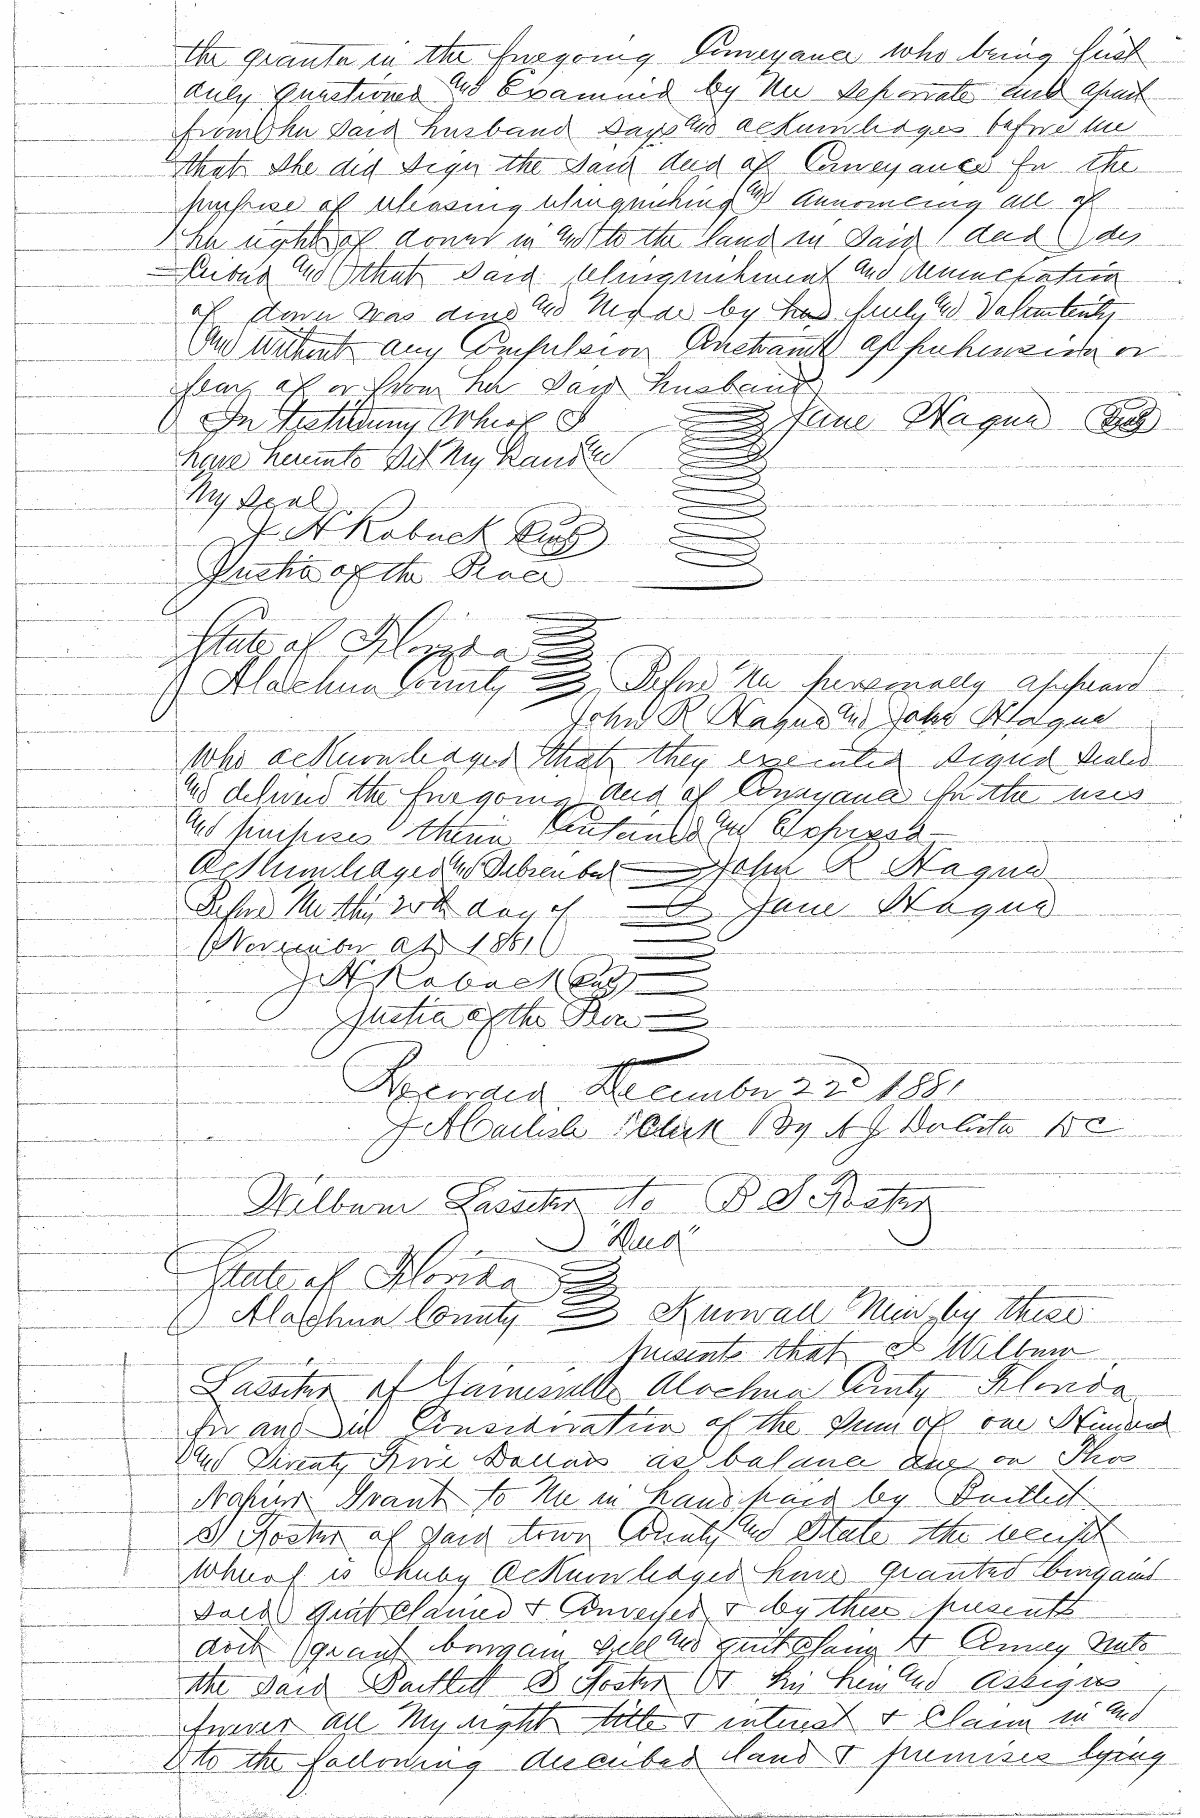 the grantor in the foregoing Conveyance who being first
duly questioned and Examined by Me seperate and apart
from her said husband says and acknowledges before me
that she did sign the said deed of Conveyance for the
purpose of releasing relinquishing and announcing all of
her right of dower in and to the land in said deed des
cribed and that said relinquishment and renunciation
of dower was done and Made by her freely and Voluntarily
and without any Compulsion Constraint apprehension or
fear of or from her said husband
In Testimony Whereof I Jane Hague Seal
have hereunto Set My Hand and
My Seal
J A Roebuck Seal
Justice of the Peace
State of Florida
Alachua County Before Me personally appeared
John R Hague and Jane Hague
who acknowledged that they executed signed sealed
and delivered the foregoing deed of Conveyance for the uses
and purposes therein Contained and Expressed
Acknowledged and Subscribed John R Hague
Before Me this 20th day of Jane Hague
November AD 1881
J A Roebuck Seal
Justice of the Peace
Recorded December 22d 1881
J A Carlisle Clerk By A J DC
Wilburn Lassiter to B S Foster
"Deed"
State of Florida
Alachua County Know all Men by these
presents that I Wilburn
Lassiter of Gainesville Alachua County Florida
for and in Consideration of the Sum of one Hundred
and Seventy Five Dollars as balance due on Thos
Napier Grant to Me in hand paid by Bartlett
S Foster of said town County and State the receipt
whereof is hereby acknowledged have granted bargained
sold quit claimed & Conveyed & by these presents
doth grant bargain sell and quit claim & Convey unto
the said Bartlett S Foster & his heirs and assigns
forever all My right title & interest & Claim in and
to the following described land & premises lying